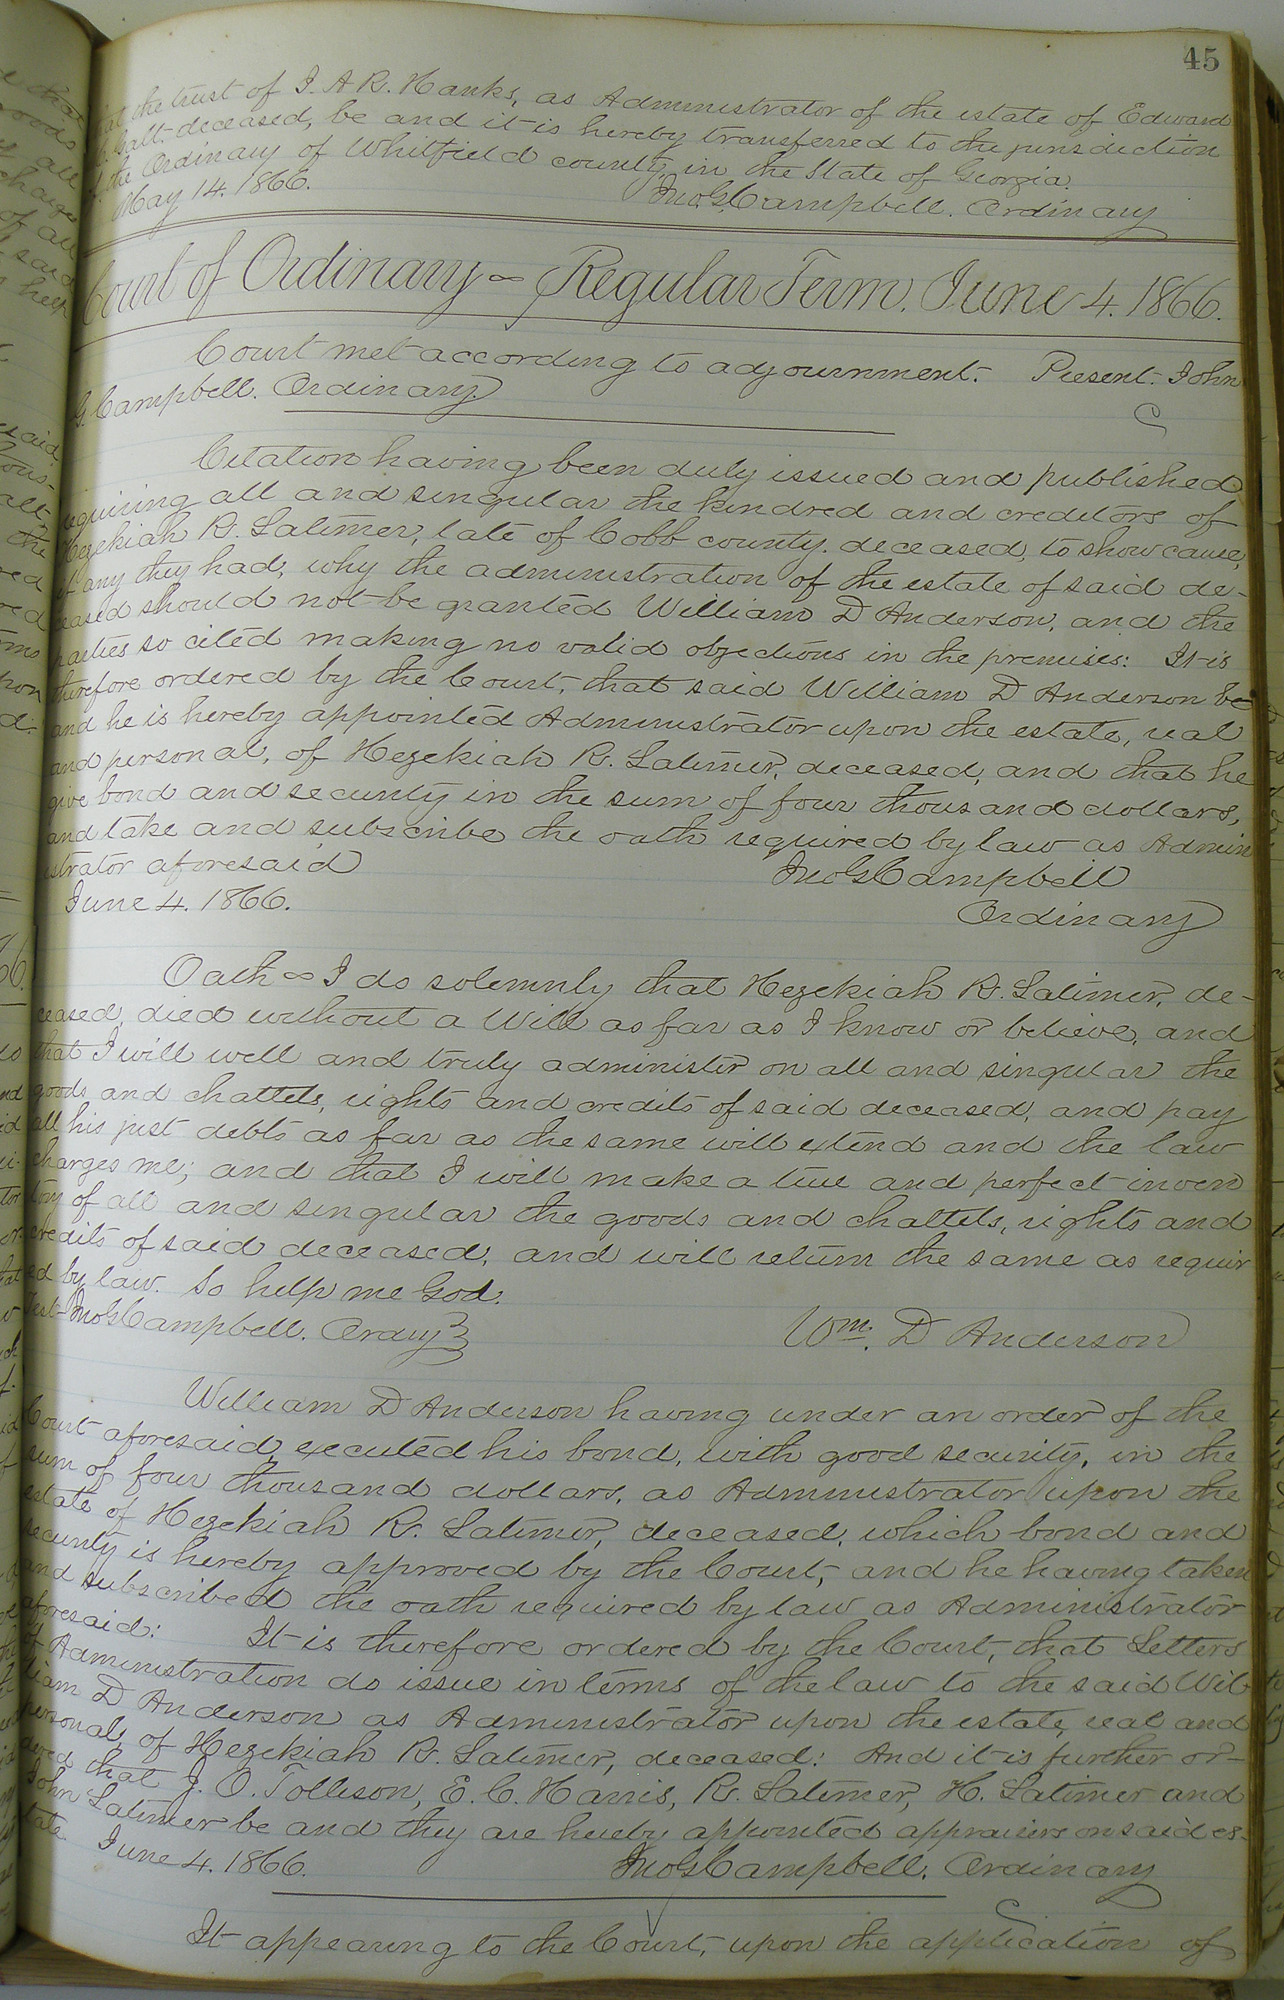 45
that the trust of J. A. R. Hanks, as Administrator of the estate of Edward
Galt. deceased, be and it is hereby transferred to the jurisdiction
of the Ordinary of Whitfield county, in the State of Georgia.
May 14. 1866. Jno. G. Campbell. Ordinary
Court of Ordinary ~ Regular Term. June 4. 1866.
Court met according to adjournment. Present. John
G. Campbell. Ordinary.
Citation having been duly issued and published
requiring all and singular the kindred and creditors of
Hezekiah R. Latimer, late of Cobb county. deceased, to show cause,
if any they had, why the administration of the estate of said de-
ceased should not be granted William D Anderson, and the
parties so cited making no valid objections in the premises: It is
therefore ordered by the Court, that said William D Anderson be
and he is hereby appointed Administrator upon the estate, real
and personal, of Hezekiah R. Latimer, deceased, and that he
give bond and security in the sum of four thousand dollars,
and take and subscribe the oath required by law as Admin
istrator aforesaid
Jno G Campbell
June 4. 1866.
Ordinary
Oath ~ I do solemnly that Hezekiah R. Latimer, de-
ceased, died without a Will as far as I know or believe, and
that I will well and truly administer on all and singular the
goods and chattels, rights and credits of said deceased, and pay
all his just debts as far as the same will extend and the law
charges me; and that I will make a true and perfect inven
tory of all and singular the goods and chattels, rights and
credits of said deceased, and will return the same as requir
ed by law. So help me God.
Test- Jno G Campbell. Ordny } Wm. D Anderson
William D Anderson having under an order of the
Court aforesaid, executed his bond, with good security, in the
sum of four thousand dollars, as Administrator upon the
estate of Hezekiah R. Latimer, deceased, which bond and
security is hereby approved by the Court, and he having taken
and subscribed the oath required by law as Administrator
aforesaid: It is therefore ordered by the Court, that Letters
of Administration do issue in terms of the law to the said Wil-
liam D Anderson as Administrator upon the estate, real and
personal, of Hezekiah R. Latimer, deceased: And it is further or-
dered that J. O. Tolleson, E. C. Harris, R. Latimer, H. Latimer and
John Latimer be and they are hereby appointed appraisers on said es-
tate. June 4. 1866. Jno G Campbell. Ordinary
It appearing to the Court, upon the application of